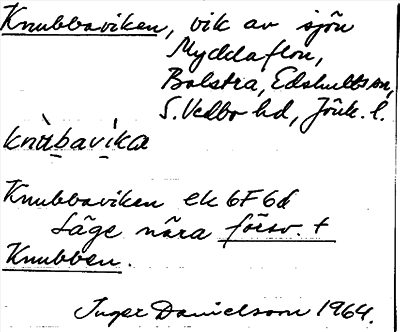 Knubbaviken, vik av sjön
Myddaflon,
Bolstra, Edshults sn,
S. Vedbo hd, Jönk. l.
knùbavika
Knubbaviken ek 6F 6d
Läge nära försv. t
Knubben.
Inger Danielsson 1964.